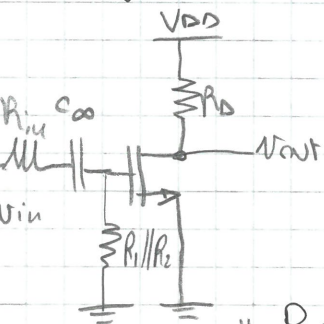 VDD
RD
Rin C∞
Vout
Vin
R1//R2